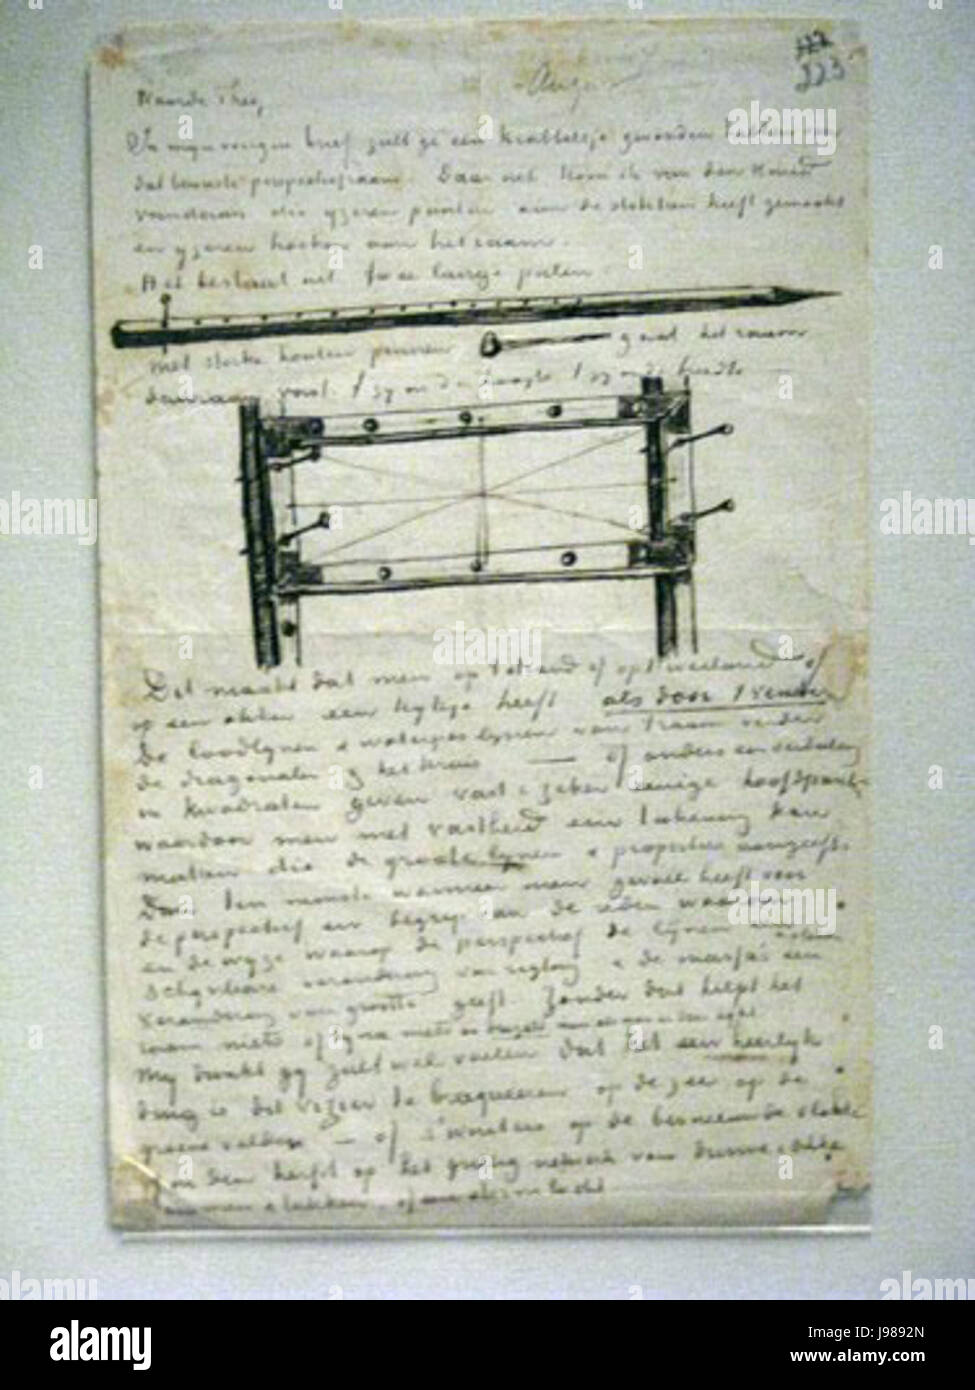 223
Waarde Theo,
In mijn vorigen brief zult ge een krabbeltje gevonden hebben van
dat bewuste perspectiefraam. Daar net kom ik van den smid
vandaan die ijzeren punten aan de stokken heeft gemaakt
en ijzeren hoeken aan het raam.
Het bestaat uit twee lange palen
met sterke houten pennen gaat het raam
daaraan vast, 't zij op de hoogte 't zij op de breedte
Dit maakt dat men op 't strand of op 't weiland of
op een akker een kijkje heeft als door 't venster
De loodlijnen & waterpaslijnen van 't raam verder
de diagonalen & het kruis — of anders een verdeeling
in kwadraten geven vast & zeker eenige hoofdpunten
waardoor men met vastheid een teekening kan
maken die de groote lijnen & proporties aangeeft.
Dan ten minste wanneer men gevoel heeft voor
de perspectief en begrip van de reden waarom
en de wijze waarop de perspectief de lijnen een
schijnbare verandering van rigting & de massa's een
verandering van grootte geeft. Zonder dat helpt het
raam niets of bijna niets
Mij dunkt gij zult wel voelen dat het een heerlijk
ding is dit vizier te braqueeren op de zee op de
groene velden — of 's winters op de besneeuwde
in den herfst op het grillig netwerk van dunne & dikke